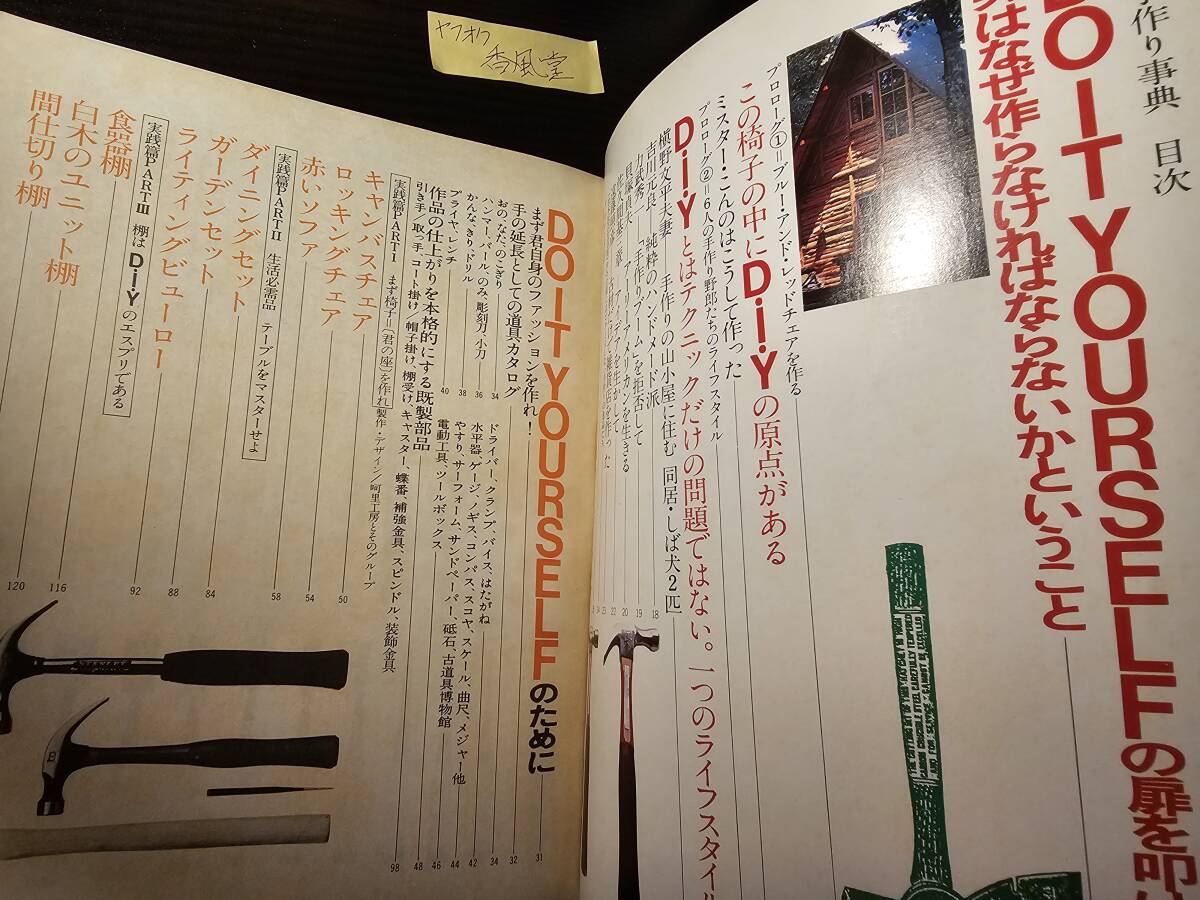 ヤフオク
香風堂
手作り事典 目次
DO IT YOURSELFの扉を叩け
はなぜ作らなければならないかということ
プロローグ①=ブルー・アンド・レッドチェアを作る
この椅子の中にD・I・Yの原点がある
ミスター・こんのはこうして作った
プロローグ②=6人の手作り野郎たちのライフスタイル
D・I・Yとはテクニックだけの問題ではない。一つのライフスタイル
槇野文平夫妻 手作りの山小屋に住む 同居・しば犬2匹
18
吉川元良 純粋のハンドメード派
19
力武秀一 「手作りブーム」を拒否して
20
アーリーアメリカンを生きる
22
23
24
DO IT YOURSELFのために
31
まず君自身のファッションを作れ!
32
手の延長としての道具カタログ
34
おの、なた、のこぎり
34
ハンマー、バール、のみ、彫刻刀、小刀
36
かんな、きり、ドリル
38
プライヤ、レンチ
40
ドライバー、クランプ、バイス、はたがね
42
水平器、ゲージ、ノギス、コンパス、スコヤ、スケール、曲尺、メジャー他
44
やすり、サーフォーム、サンドペーパー、砥石、古道具博物館
46
電動工具、ツールボックス
48
作品の仕上がりを本格的にする既製部品
引き手/取っ手、コート掛け/帽子掛け、棚受け、キャスター、蝶番、補強金具、スピンドル、装飾金具
98
実践篇PARTI まず椅子=〔君の座〕を作れ
製作・デザイン/呵里工房とそのグループ
キャンバスチェア
50
ロッキングチェア
54
赤いソファ
58
実践篇PARTII 生活必需品 テーブルをマスターせよ
ダイニングセット
84
ガーデンセット
88
ライティングビューロー
92
実践篇PARTIII 棚はD・I・Yのエスプリである
食器棚
116
白木のユニット棚
120
間仕切り棚
STANLEY